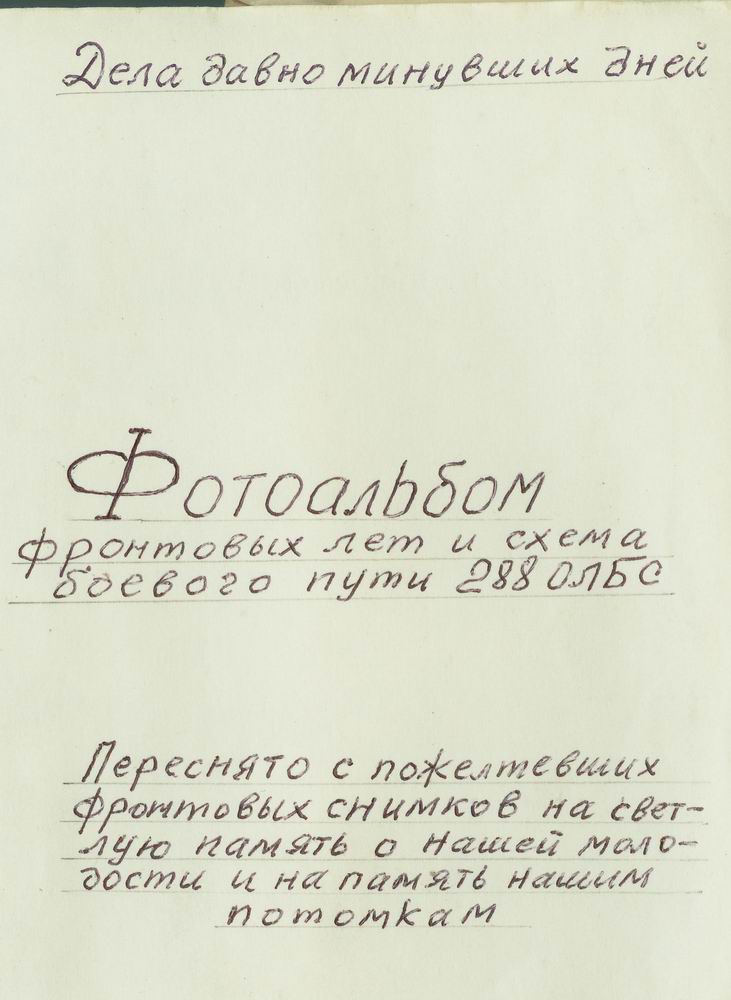 Дела давно минувших дней
Фотоальбом
фронтовых лет и схема
боевого пути 288 ОЛБС
Переснято с пожелтевших
фронтовых снимков на свет-
лую память о нашей моло-
дости и на память нашим
потомкам